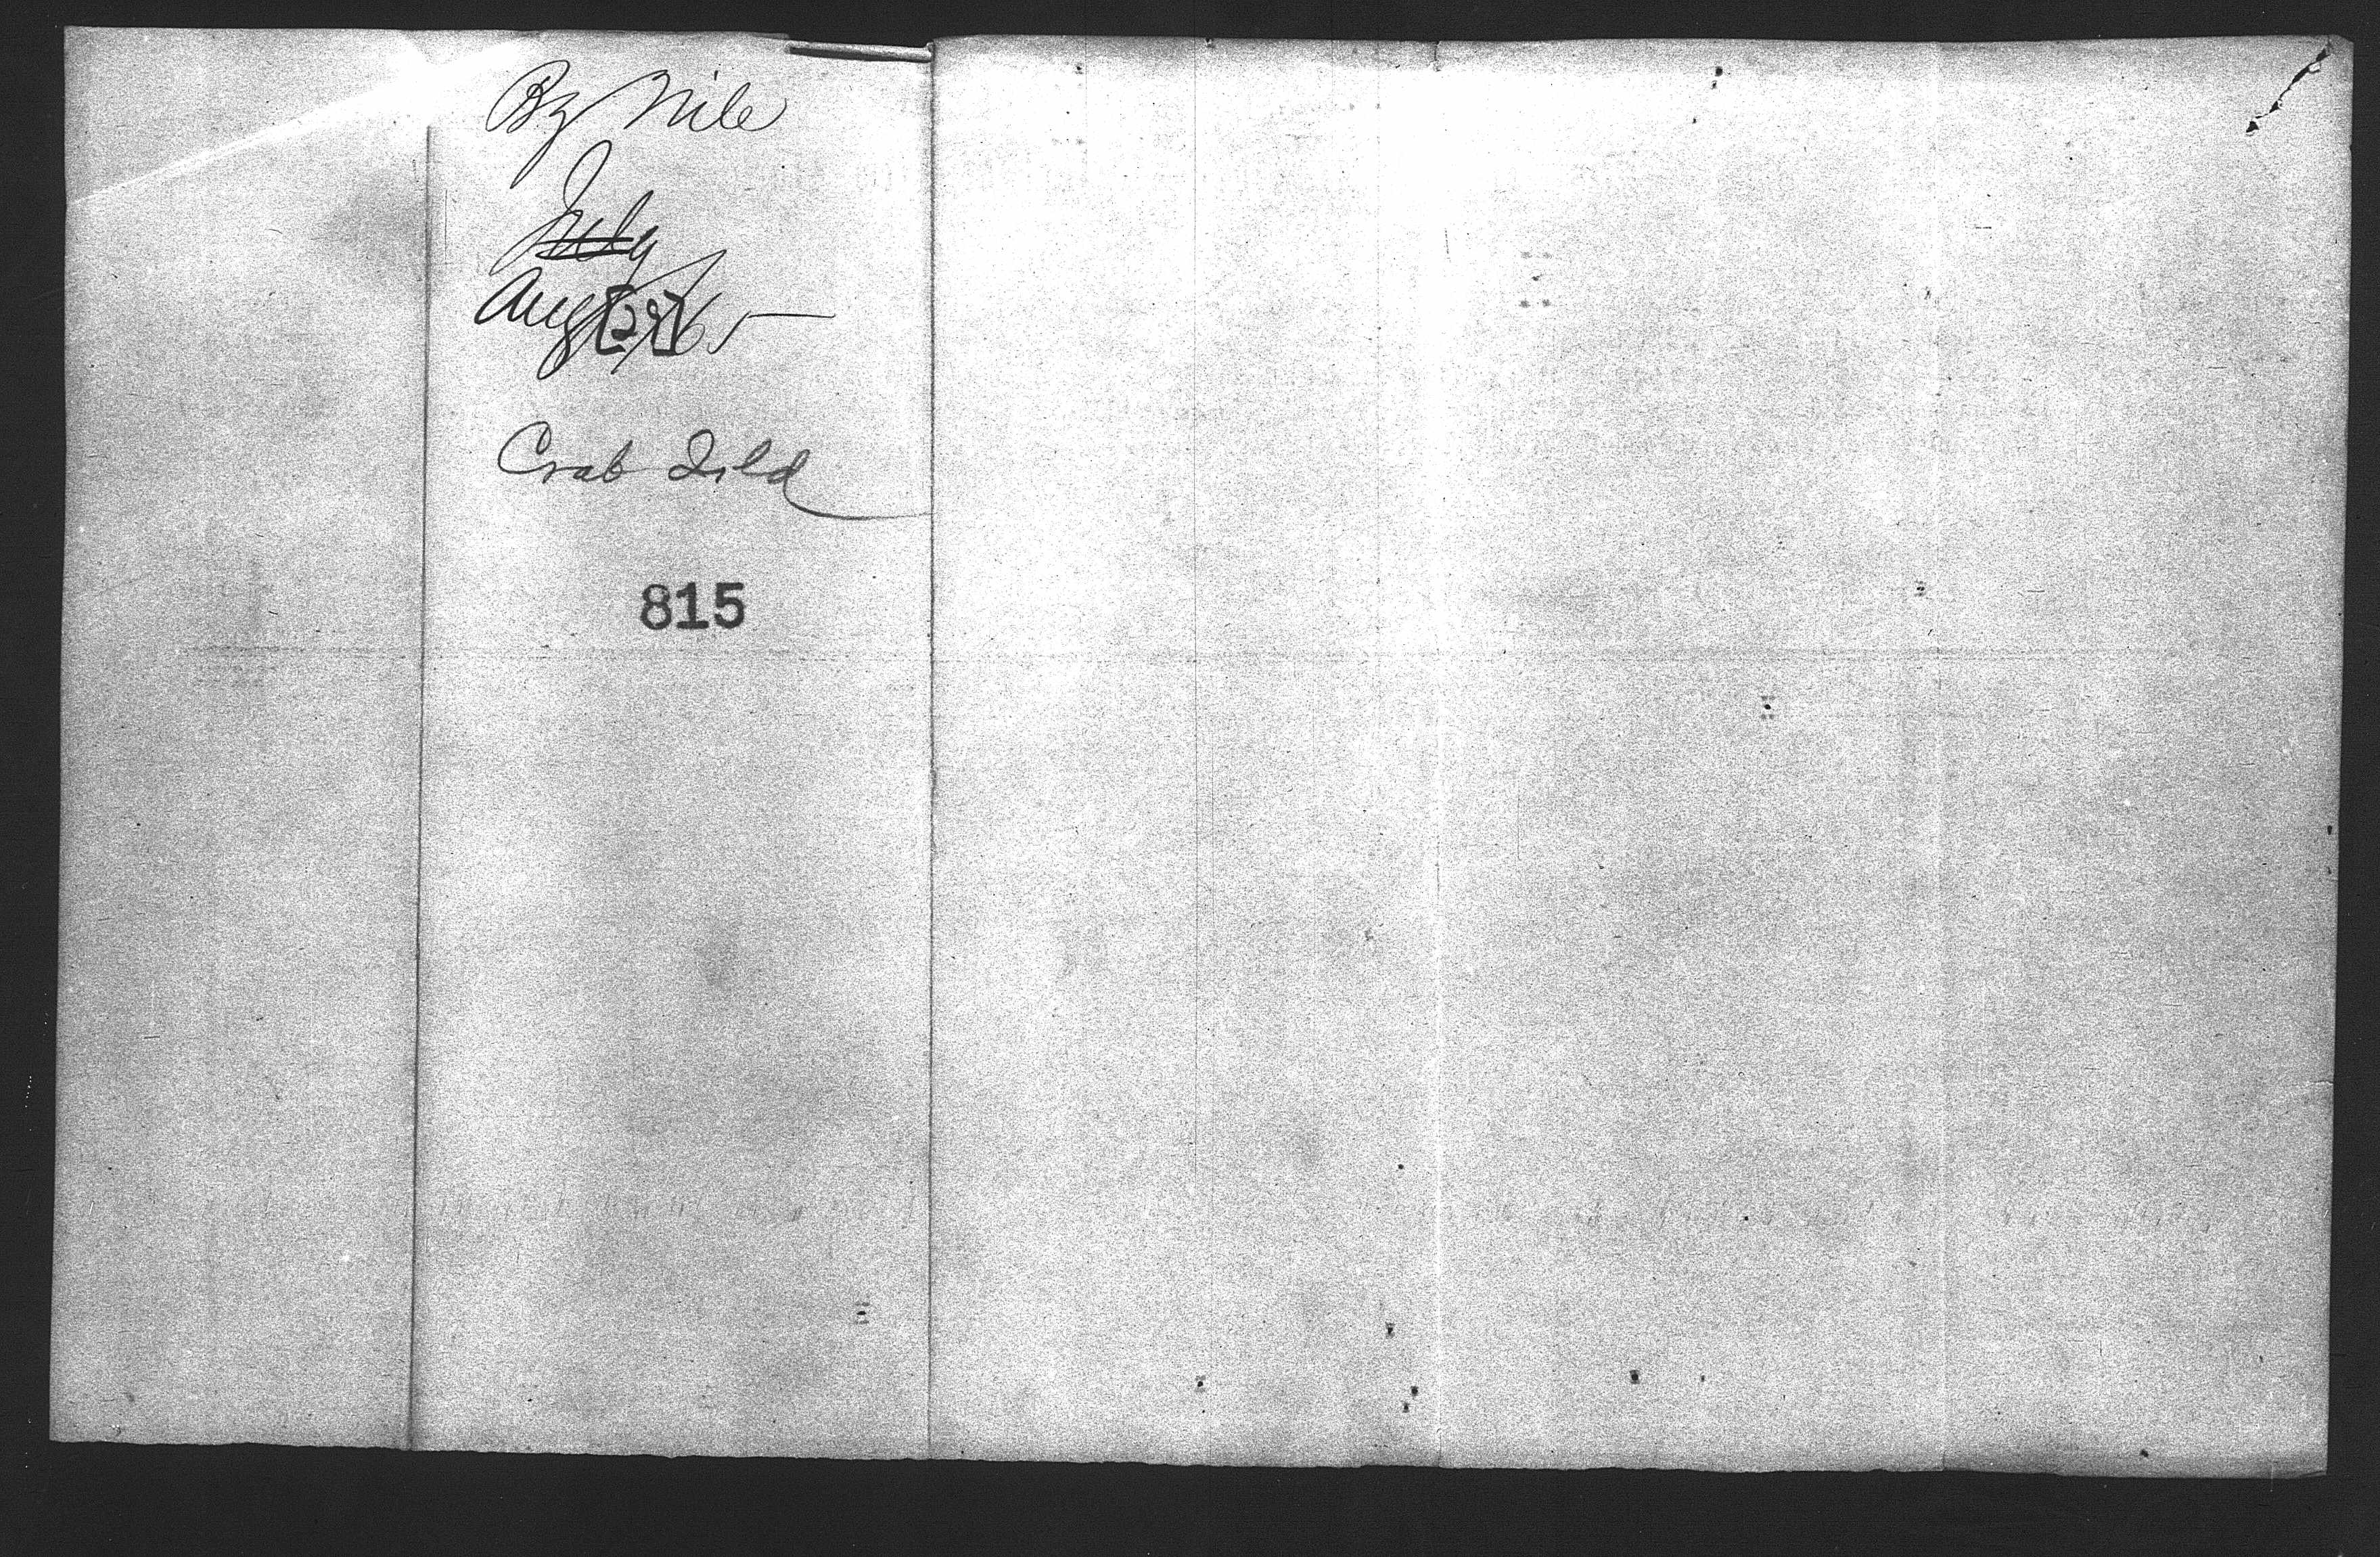 By Nile
July
Aug [28]/65
Crab Isld
815